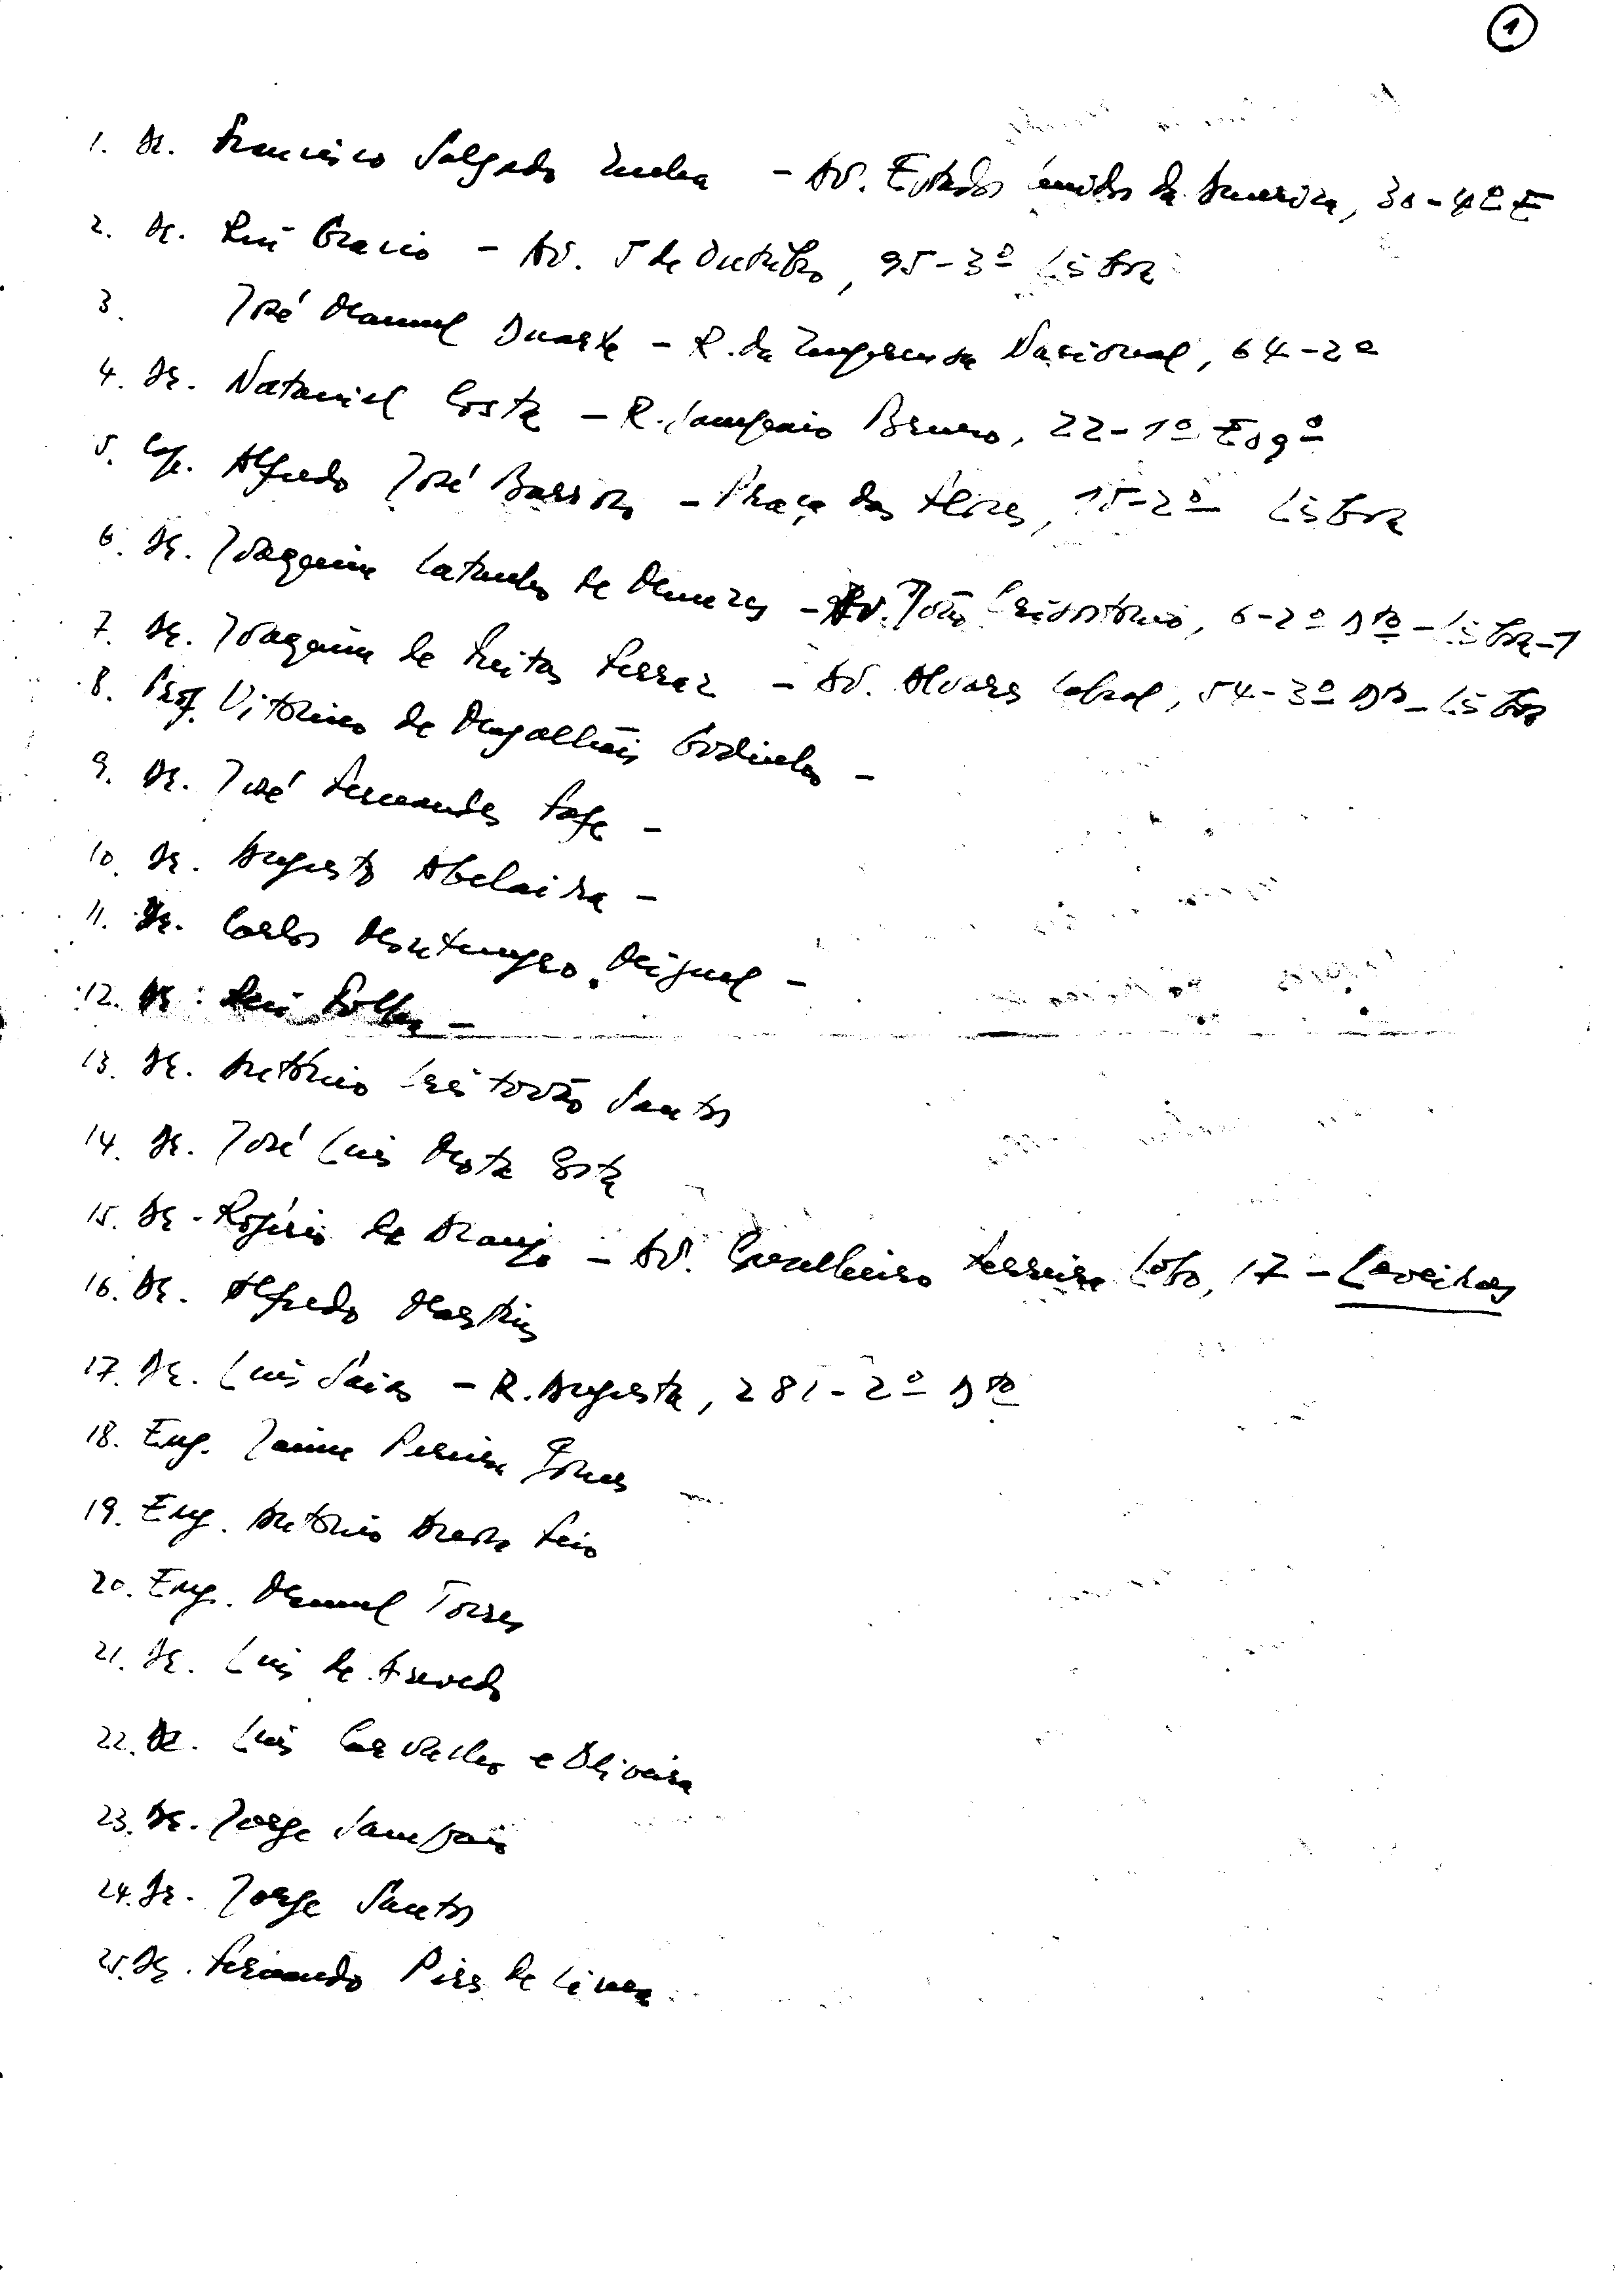 1
1. Dr. Francisco Salgado Zenha - Av. Estados Unidos da America, 30-4º E
2. Dr. Rui Grácio - Av. 5 de Outubro, 95-3º Lisboa
3. José Manuel Duarte - R. da Imprensa Nacional, 64-2º
4. Dr. Nataniel Costa - R. Sampaio Bruno, 22-1º Esqº
5. Alfredo José Barros - Praça das Flores, 15-2º Lisboa
6. Dr. Joaquim Catanho de Menezes - Av. João Crisóstomo, 6-2º Dtº - Lisboa-1
7. Dr. Joaquim de Freitas Ferraz - Av. Alvares Cabral, 54-3º Dto - Lisboa
8. Prof. Vitorino de Magalhãis Godinho -
9. Dr. José Fernandes Fafe -
10. Dr. Augusto Abelaira -
11. Dr. Carlos Montenegro Miguel -
12. Dr. Rui
13. Dr. António Cristovão Santos
14. Dr. José Luis Mota Costa
15. Dr. Rogério de Araujo - Av. Conselheiro Ferreira Lobo, 17 - Caxias
16. Dr. Alfredo Martins
17. Dr. Luis Sáias - R. Augusta, 281-2º Dtº
18. Eng. Jaime Pereira Gomes
19. Eng. António Areosa Feio
20. Eng. Manuel Torres
21. Dr. Luis de Azevedo
22. Dr. Luis Carvalho e Oliveira
23. Dr. Jorge Sampaio
24. Dr. Jorge Santos
25. Dr. Fernando Pires de Lima